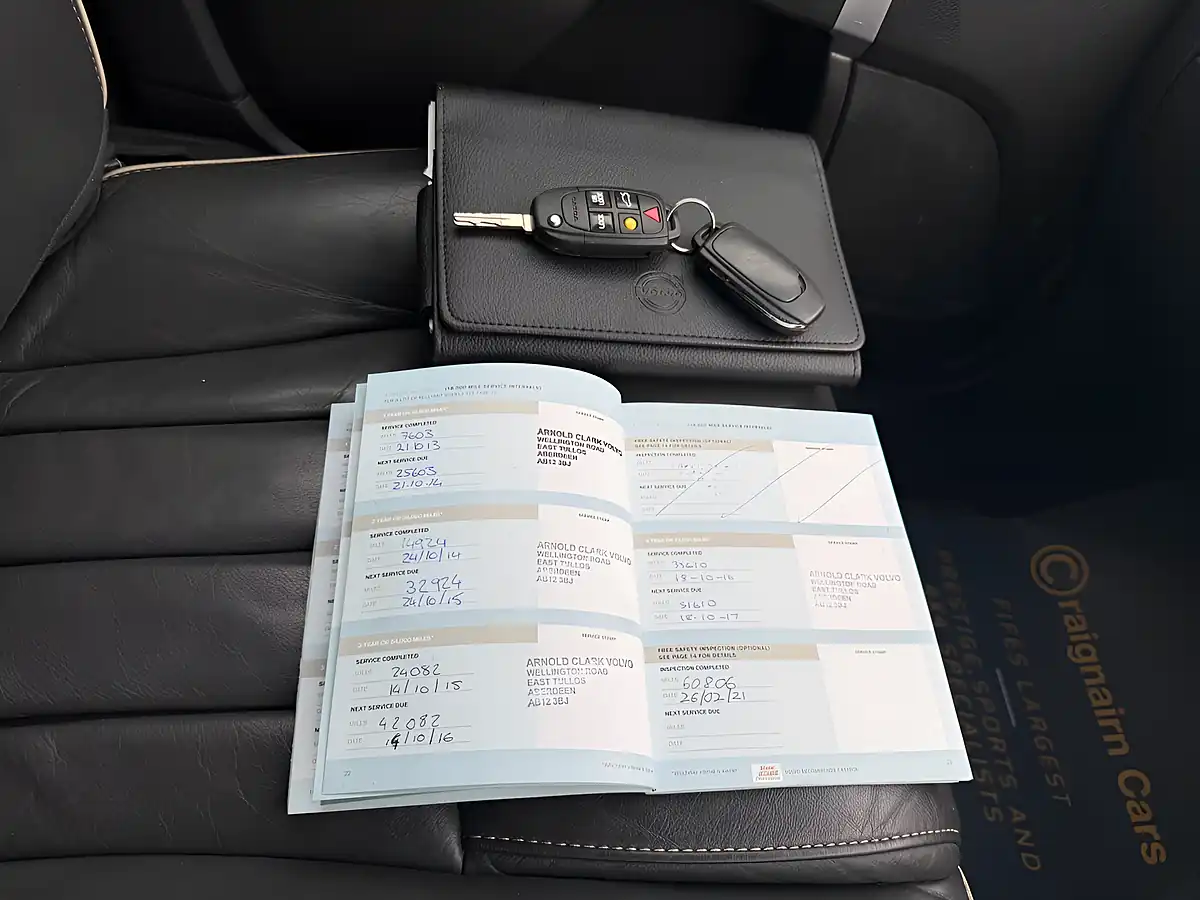 UN LOCK
LOCK
VOLVO
(18,000 MILE SERVICE INTERVALS)
SERVICE COMPLETED
MILES 7603
DATE 21.10.13
NEXT SERVICE DUE
MILES 25603
DATE 21.10.14
SERVICE STAMP
ARNOLD CLARK VOLVO
WELLINGTON ROAD
EAST TULLOS
ABERDEEN
AB12 3BJ
SERVICE COMPLETED
MILES 14924
DATE 24/10/14
NEXT SERVICE DUE
MILES 32924
DATE 24/10/15
SERVICE STAMP
ARNOLD CLARK VOLVO
WELLINGTON ROAD
EAST TULLOS
ABERDEEN
AB12 3BJ
SERVICE COMPLETED
MILES 24082
DATE 14/10/15
NEXT SERVICE DUE
MILES 42082
DATE 14/10/16
SERVICE STAMP
ARNOLD CLARK VOLVO
WELLINGTON ROAD
EAST TULLOS
ABERDEEN
AB12 3BJ
22
FREE SAFETY INSPECTION (OPTIONAL)
SEE PAGE 14 FOR DETAILS
INSPECTION COMPLETED
NEXT SERVICE DUE
SERVICE COMPLETED
MILES 33610
DATE 18-10-16
NEXT SERVICE DUE
MILES 51610
DATE 18-10-17
SERVICE STAMP
ARNOLD CLARK VOLVO
WELLINGTON ROAD
EAST TULLOS
ABERDEEN
AB12 3BJ
FREE SAFETY INSPECTION (OPTIONAL)
SEE PAGE 14 FOR DETAILS
INSPECTION COMPLETED
MILES 60806
DATE 26/02/21
NEXT SERVICE DUE
MILES
DATE
SERVICE STAMP
Craigmairn Cars
FIFES LARGEST
PRESTIGE, SPORTS AND
4X4 SPECIALISTS